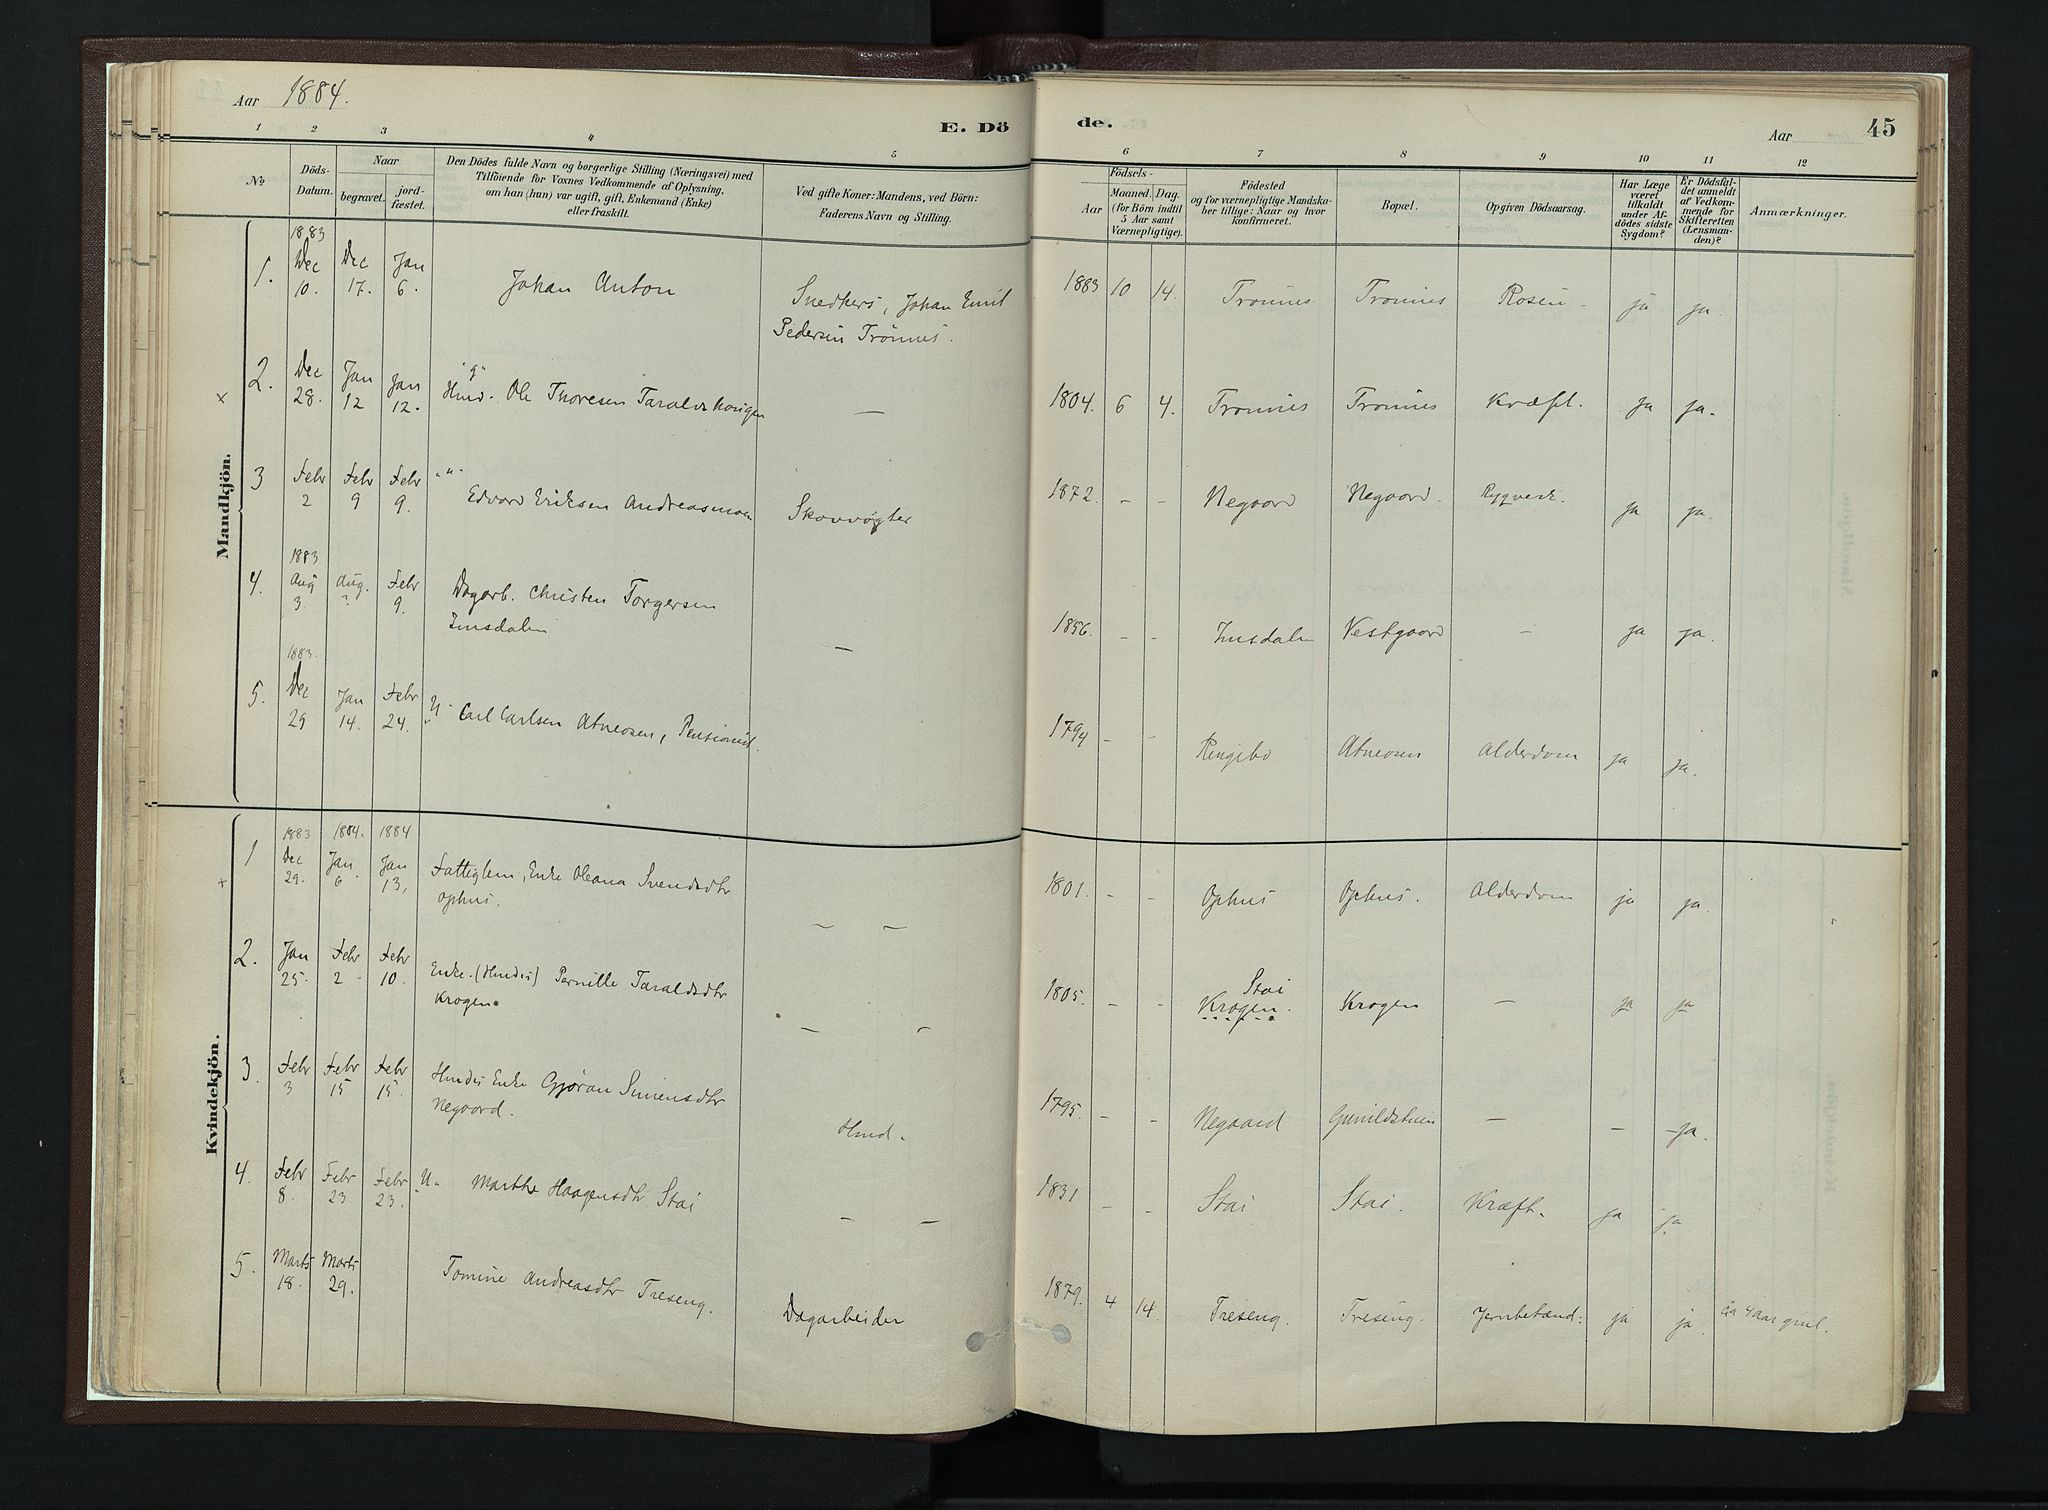 Aar 1884.
E. Dö
de.
Aar
45
1 2 3 4 5 6 7 8 9 10 11 12
No
Döds-Datum.
Naar
begravet.
jord-fæstet.
Den Dödes fulde Navn og borgerlige Stilling (Næringsvei) med
Tilföiende for Voxnes Vedkommende af Oplysning,
om han (hun) var ugift, gift, Enkemand (Enke)
eller fraskilt.
Ved gifte Koner: Mandens, ved Börn:
Faderens Navn og Stilling.
Födsels-
Aar
Maaned.
Dag.
(for Börn indtil
5 Aar samt
Værnepligtige).
Födested
og for værnepligtige Mandska-
ber tillige: Naar og hvor
konfirmeret.
Bopæl.
Opgiven Dödsaarsag.
Har Læge
været
tilkaldt
under Af-
dödes sidste
Sygdom?
Er Dödsfal-
det anmeldt
af Vedkom-
mende for
Skifteretten
(Lensman-
den)?
Anmærkninger.
Mandkjön.
1883
1. Dec 10. Dec 17. Jan 6. Johan Anton Snedkers, Johan Emil 1883 10 14. Trønnes Trønnes ja ja.
Pedersen Trønnes.
2. Dec 28. Jan 12 Jan 12. "g" Hmd. Ole Thoresen — 1804. 6 4. Trønnes Trønnes Kræft. ja ja.
3 Febr 2 Febr 9 Febr 9. " " Edvard Eriksen Andreasmoen Skovvogter 1872. - - Negaard Negaard. ja ja.
1883
4. Aug 3. Aug. ? Febr 9. Dagarb. Christen Torgersen
Imsdalen — 1856. - - Imsdalen Vestgaard - ja ja.
1883.
5. Dec 29 Jan 14. Febr 24. U. Carl Carlsen Atneosen, Pensionist. 1794 - - Ringebo Atneosen Alderdom ja ja.
Kvindekjön.
1883 1884. 1884
1 Dec 29. Jan 6 Jan 13, Fattiglem, Enke Oleana Svendsdtr
Ophus. — — 1801. - - Ophus Ophus. Alderdom ja ja.
2. Jan 25. Febr 2 Febr 10. Enke. (Hmdes) Pernille Taraldsdtr
Krogen. — - 1805. - - Stai
Krogen. Krogen — ja ja
3. Febr 3 Febr 15 Febr 15. Hmdes Enke Gjøran Simensdtr
Negaard. Hmd. 1795. - - Negaard — — ja.
4. Febr 8. Febr 23 Febr 23. U. Marthe Haagensdtr. Stai — — 1831 - - Stai Stai. Kræft. ja ja
5. Marts 18. Marts 29. Tomine Andreasdtr Treseng. Dagarbeider 1879. 4 14. Treseng. Treseng. ja ja. 4 Aar gml.